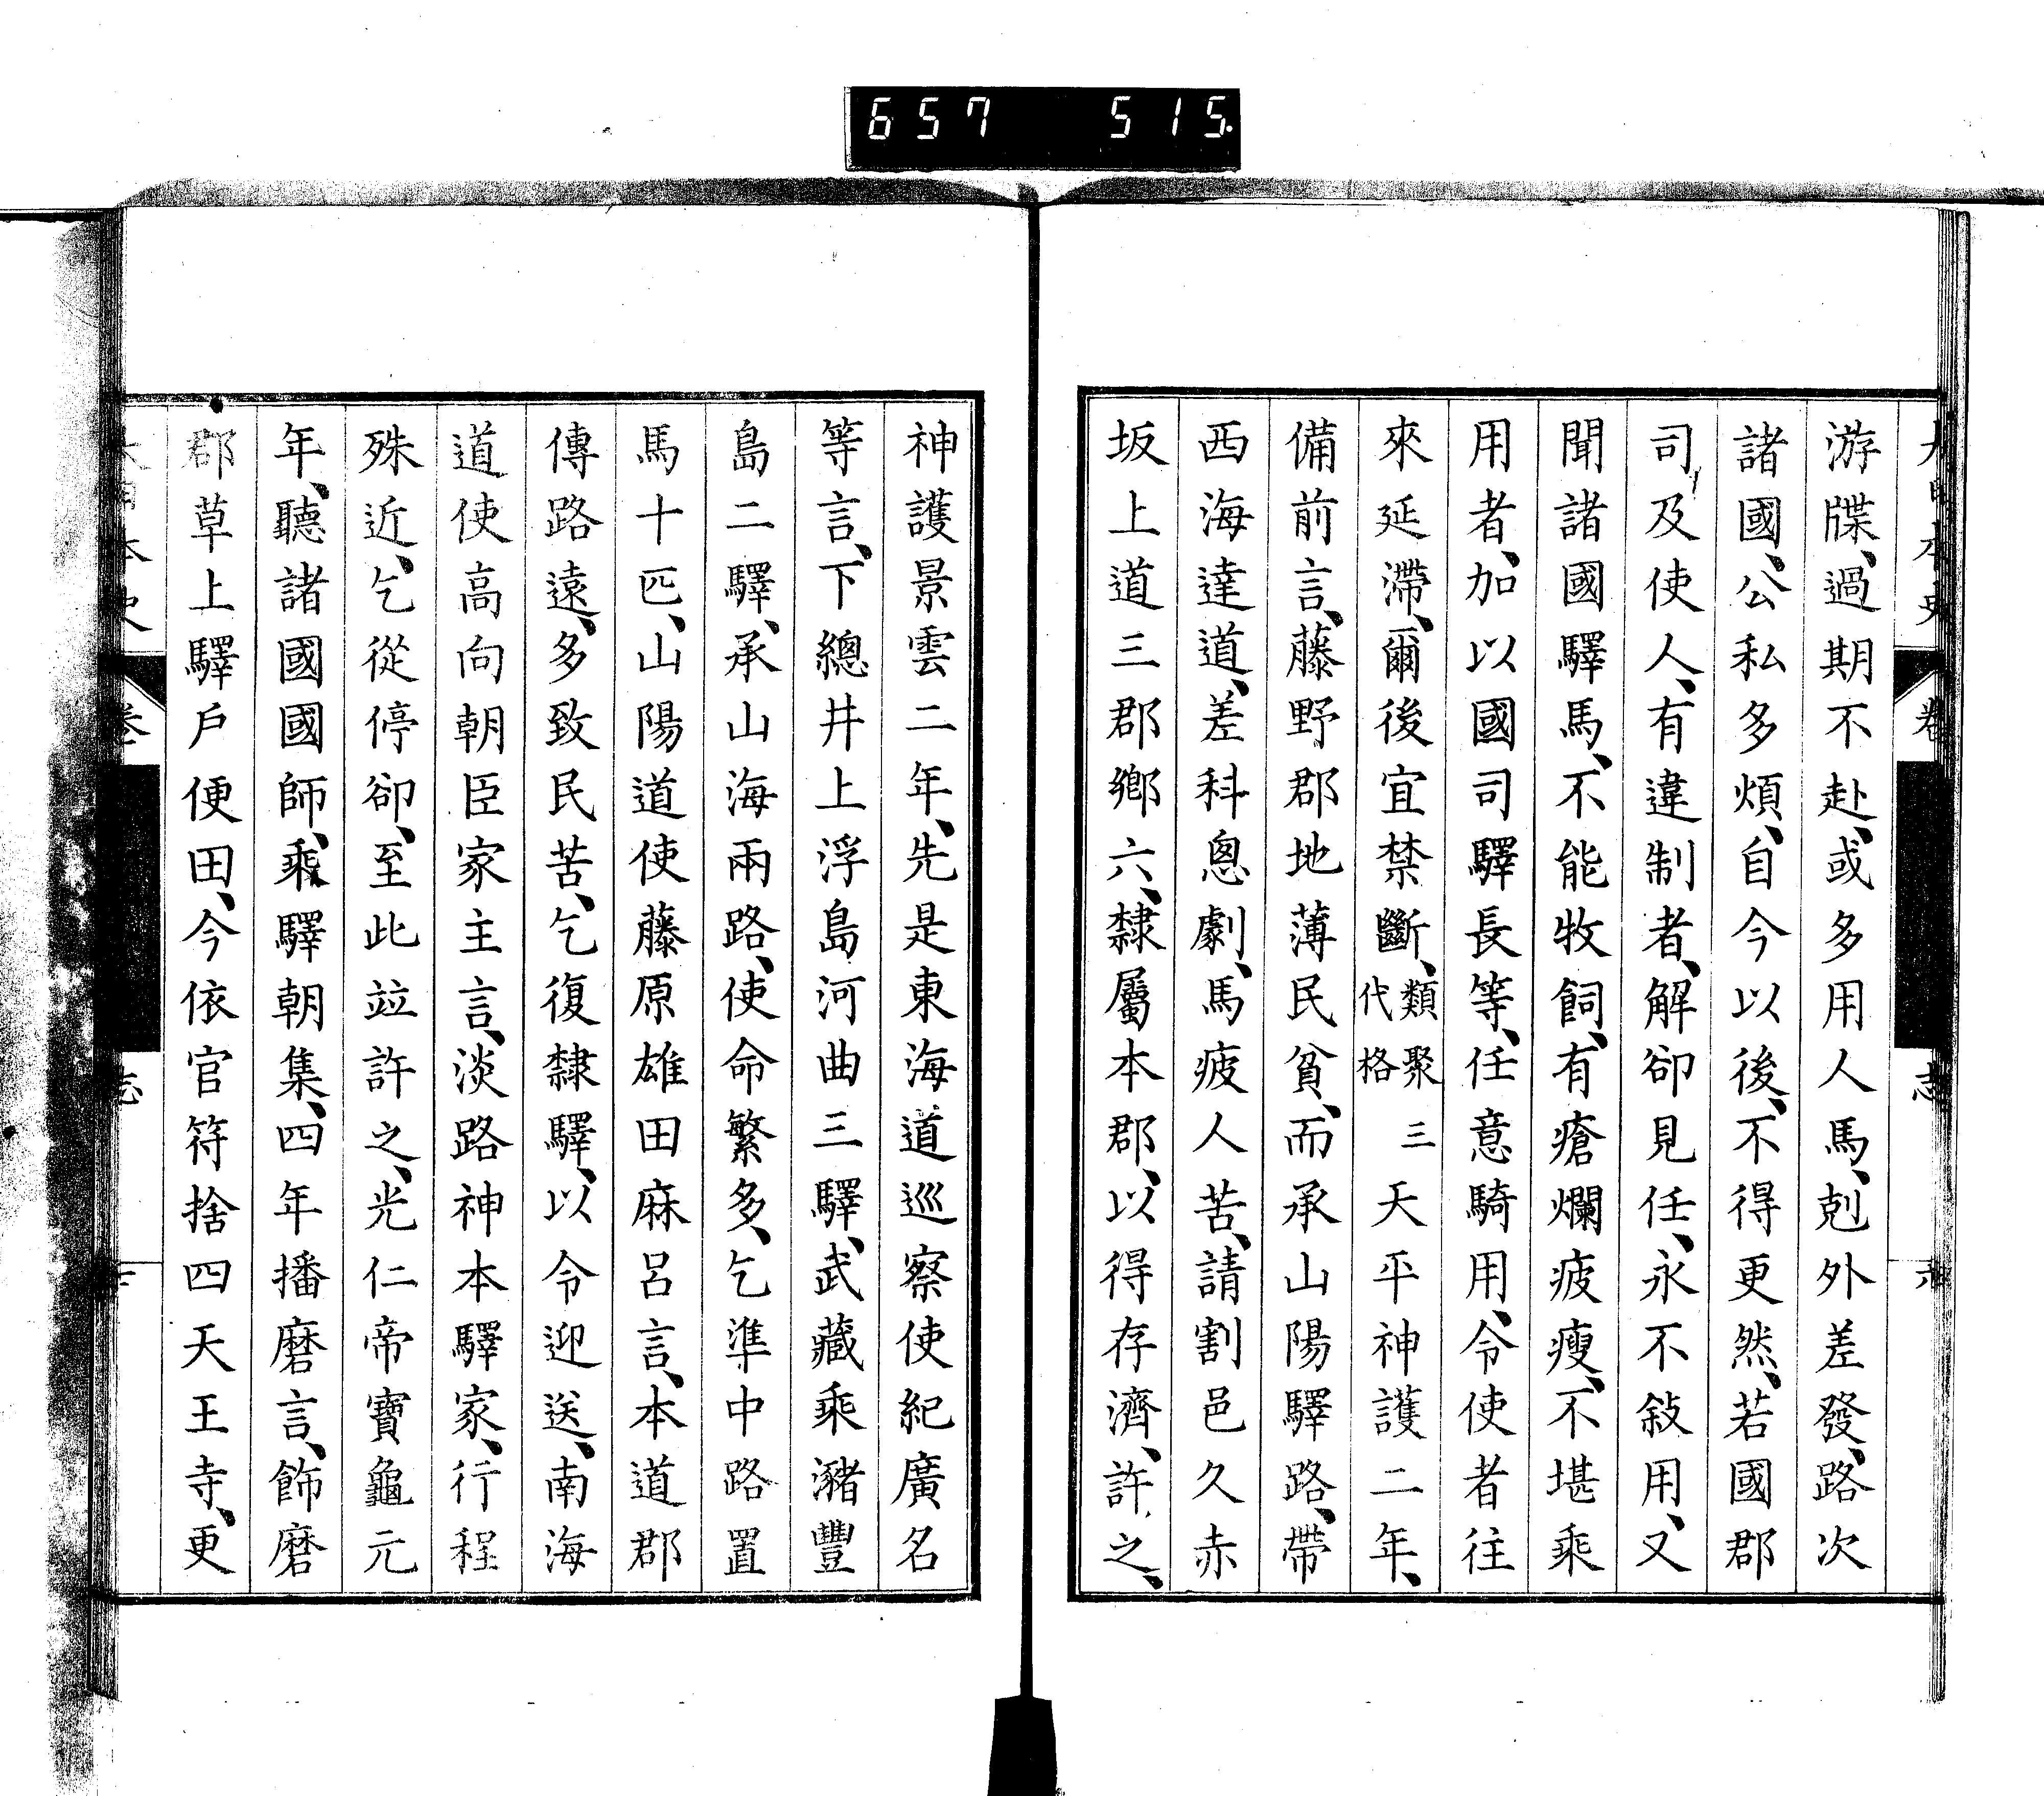 657 515
游牒、過期不赴、或多用人馬、剋外差發、路次
諸國、公私多煩、自今以後、不得更然、若國郡
司及使人、有違制者、解卻見任、永不敍用、又
聞諸國驛馬、不能牧飼、有瘡爛疲瘦、不堪乘
用者、加以國司驛長等、任意騎用、令使者往
來延滯、爾後宜禁斷、類聚三代格天平神護二年、
備前言、藤野郡地薄民貧、而承山陽驛路、帶
西海達道、差科悤劇、馬疲人苦、請割邑久赤
坂上道三郡鄉六、隸屬本郡、以得存濟、許之、
神護景雲二年、先是東海道巡察使紀廣名
等言、下總井上浮島河曲三驛、武藏乘瀦豐
島二驛、承山海兩路、使命繁多、乞準中路置
馬十匹、山陽道使藤原雄田麻呂言、本道郡
傳路遠、多致民苦、乞復隸驛、以令迎送、南海
道使高向朝臣家主言、淡路神本驛家、行程
殊近、乞從停卻、至此竝許之、光仁帝寶龜元
年、聽諸國國師、乘驛朝集、四年播磨言、飾磨
郡草上驛戶便田、今依官符捨四天王寺、更